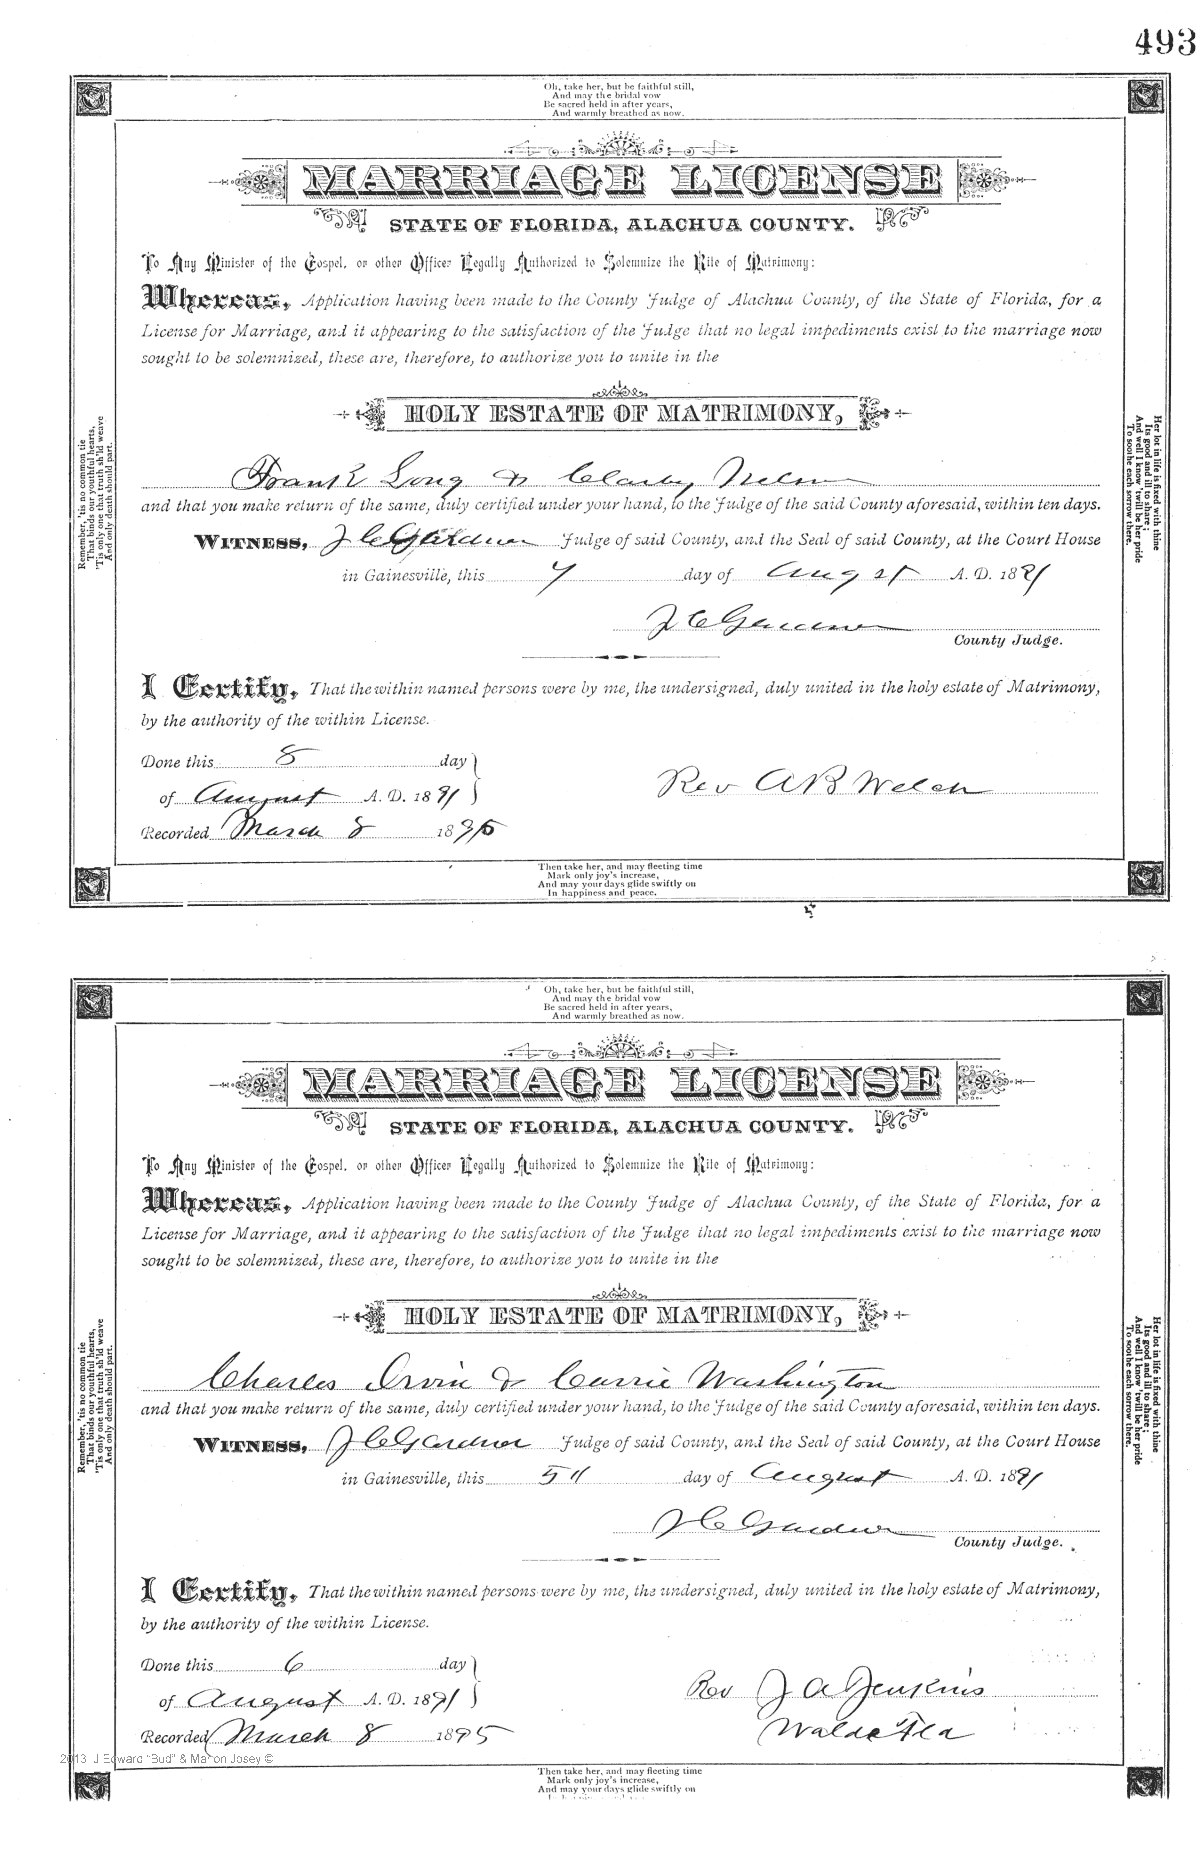 493
Oh, take her, but be faithful still,
And may the bridal vow
Be sacred held in after years,
And warmly breathed as now.
MARRIAGE LICENSE
STATE OF FLORIDA, ALACHUA COUNTY.
To Any Minister of the Gospel, or other Officer Legally Authorized to Solemnize the Rite of Matrimony:
Whereas, Application having been made to the County Judge of Alachua County, of the State of Florida, for a
License for Marriage, and it appearing to the satisfaction of the Judge that no legal impediments exist to the marriage now
sought to be solemnized, these are, therefore, to authorize you to unite in the
HOLY ESTATE OF MATRIMONY,
Frank Long & Nelson
and that you make return of the same, duly certified under your hand, to the Judge of the said County aforesaid, within ten days.
WITNESS, J C Gardner Judge of said County, and the Seal of said County, at the Court House
in Gainesville, this 7 day of August A. D. 1891
J C Gardner
County Judge.
I Certify, That the within named persons were by me, the undersigned, duly united in the holy estate of Matrimony,
by the authority of the within License.
Done this 8 day
of August A. D. 1891
Rev A B Welch
Recorded March 8 1895
Then take her, and may fleeting time
Mark only joy's increase,
And may your days glide swiftly on
In happiness and peace.
Remember, 'tis no common tie
That binds our youthful hearts,
'Tis only one that truth sh'ld weave
And only death should part.
Her lot in life is fixed with thine
Its good and ill to share;
And well I know 'twill be her pride
To soothe each sorrow there.
Oh, take her, but be faithful still,
And may the bridal vow
Be sacred held in after years,
And warmly breathed as now.
MARRIAGE LICENSE
STATE OF FLORIDA, ALACHUA COUNTY.
To Any Minister of the Gospel, or other Officer Legally Authorized to Solemnize the Rite of Matrimony:
Whereas, Application having been made to the County Judge of Alachua County, of the State of Florida, for a
License for Marriage, and it appearing to the satisfaction of the Judge that no legal impediments exist to the marriage now
sought to be solemnized, these are, therefore, to authorize you to unite in the
HOLY ESTATE OF MATRIMONY,
Charles Irvin & Carrie Washington
and that you make return of the same, duly certified under your hand, to the Judge of the said County aforesaid, within ten days.
WITNESS, J C Gardner Judge of said County, and the Seal of said County, at the Court House
in Gainesville, this 5" day of August A. D. 1891
J C Gardner
County Judge.
I Certify, That the within named persons were by me, the undersigned, duly united in the holy estate of Matrimony,
by the authority of the within License.
Done this 6 day
of August A. D. 1891
Rev J A Jenkins
Recorded March 8 1895
Waldo Fla
2013 J Edward "Bud" & Marion Josey ©
Then take her, and may fleeting time
Mark only joy's increase,
And may your days glide swiftly on
Remember, 'tis no common tie
That binds our youthful hearts,
'Tis only one that truth sh'ld weave
And only death should part.
Her lot in life is fixed with thine
Its good and ill to share;
And well I know 'twill be her pride
To soothe each sorrow there.